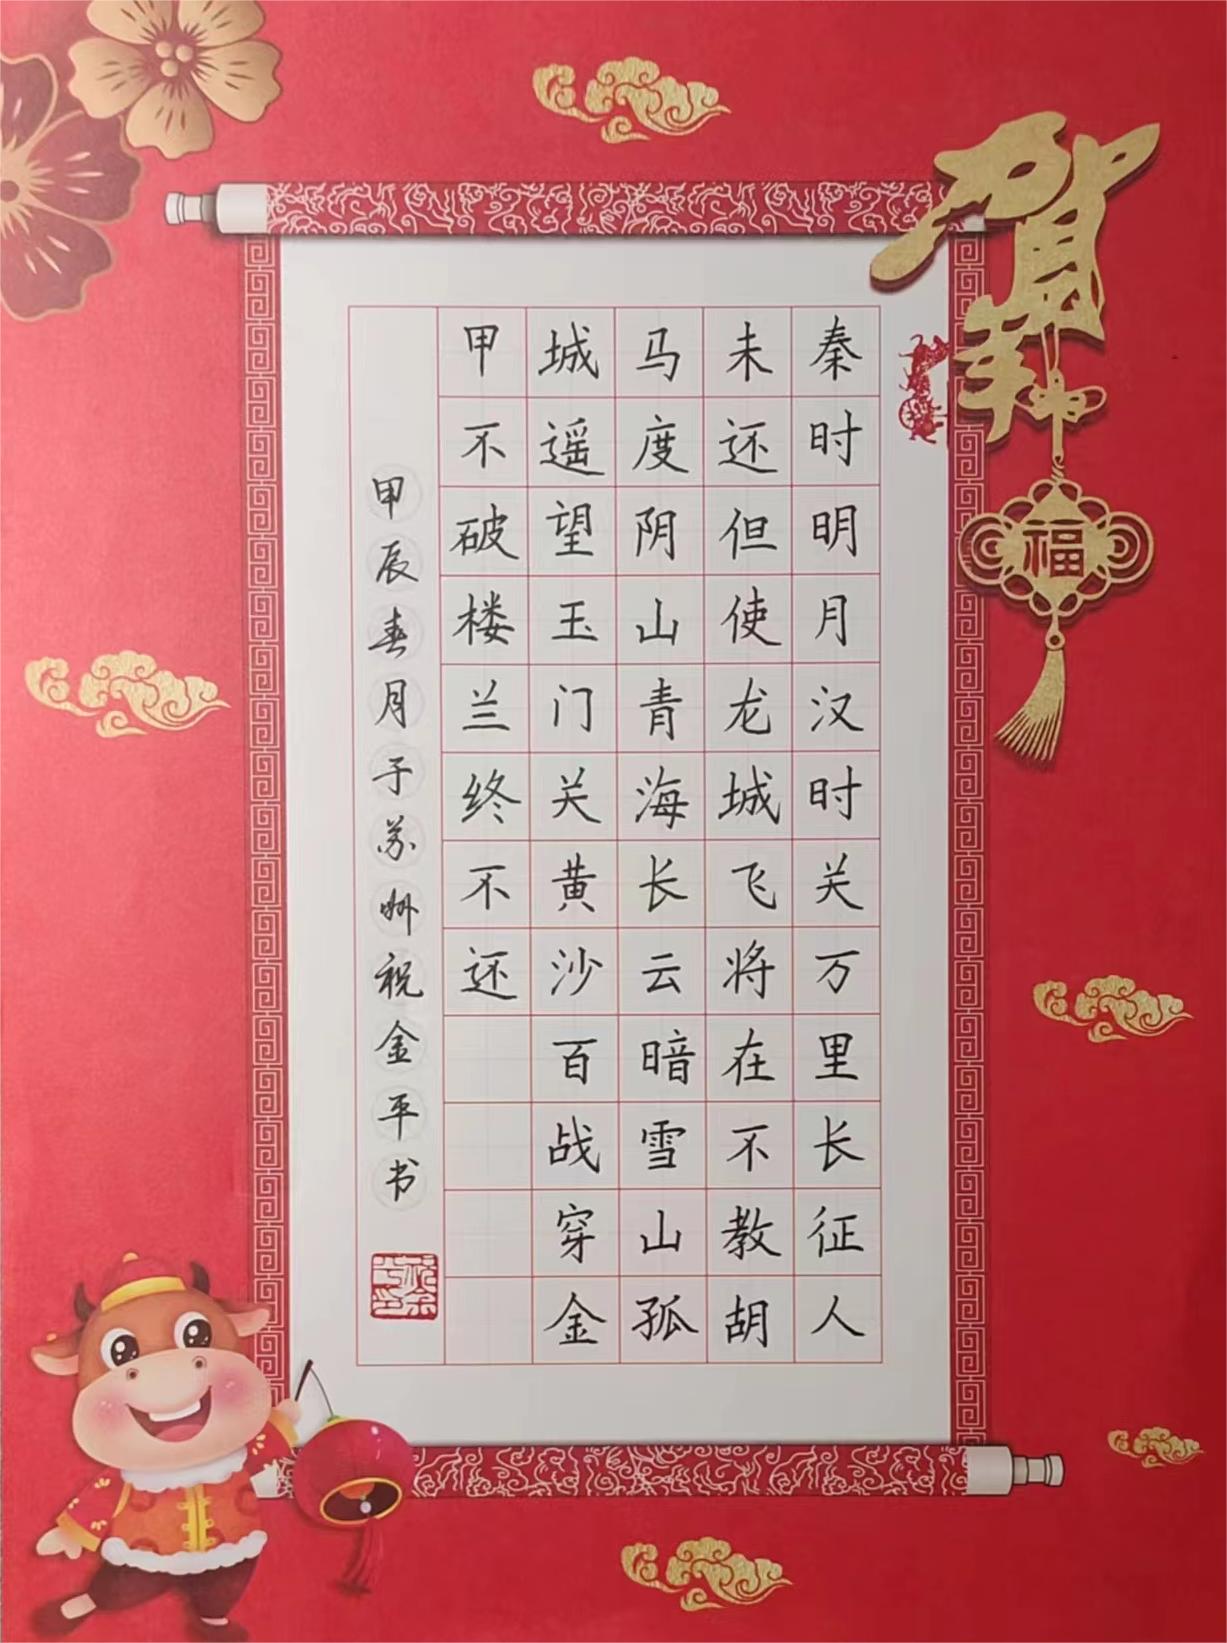 贺年
福
秦时明月汉时关万里长征人
未还但使龙城飞将在不教胡
马度阴山青海长云暗雪山孤
城遥望玉门关黄沙百战穿金
甲不破楼兰终不还
甲辰春月于苏州祝金平书